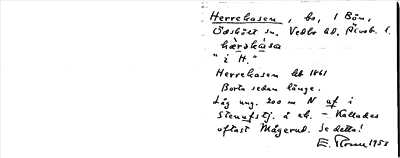 Herrekasen, bs, 1 Bön,
Ödskölt sn, Vedbo hd, Älvsb. l.
hæ̀rakàsa
"i H."
Herrekasen hb 1861
Borta sedan länge.
Låg ung. 200 m N af i
å ek. - Kallades
oftast Mågerud. Se detta!
E. 1953